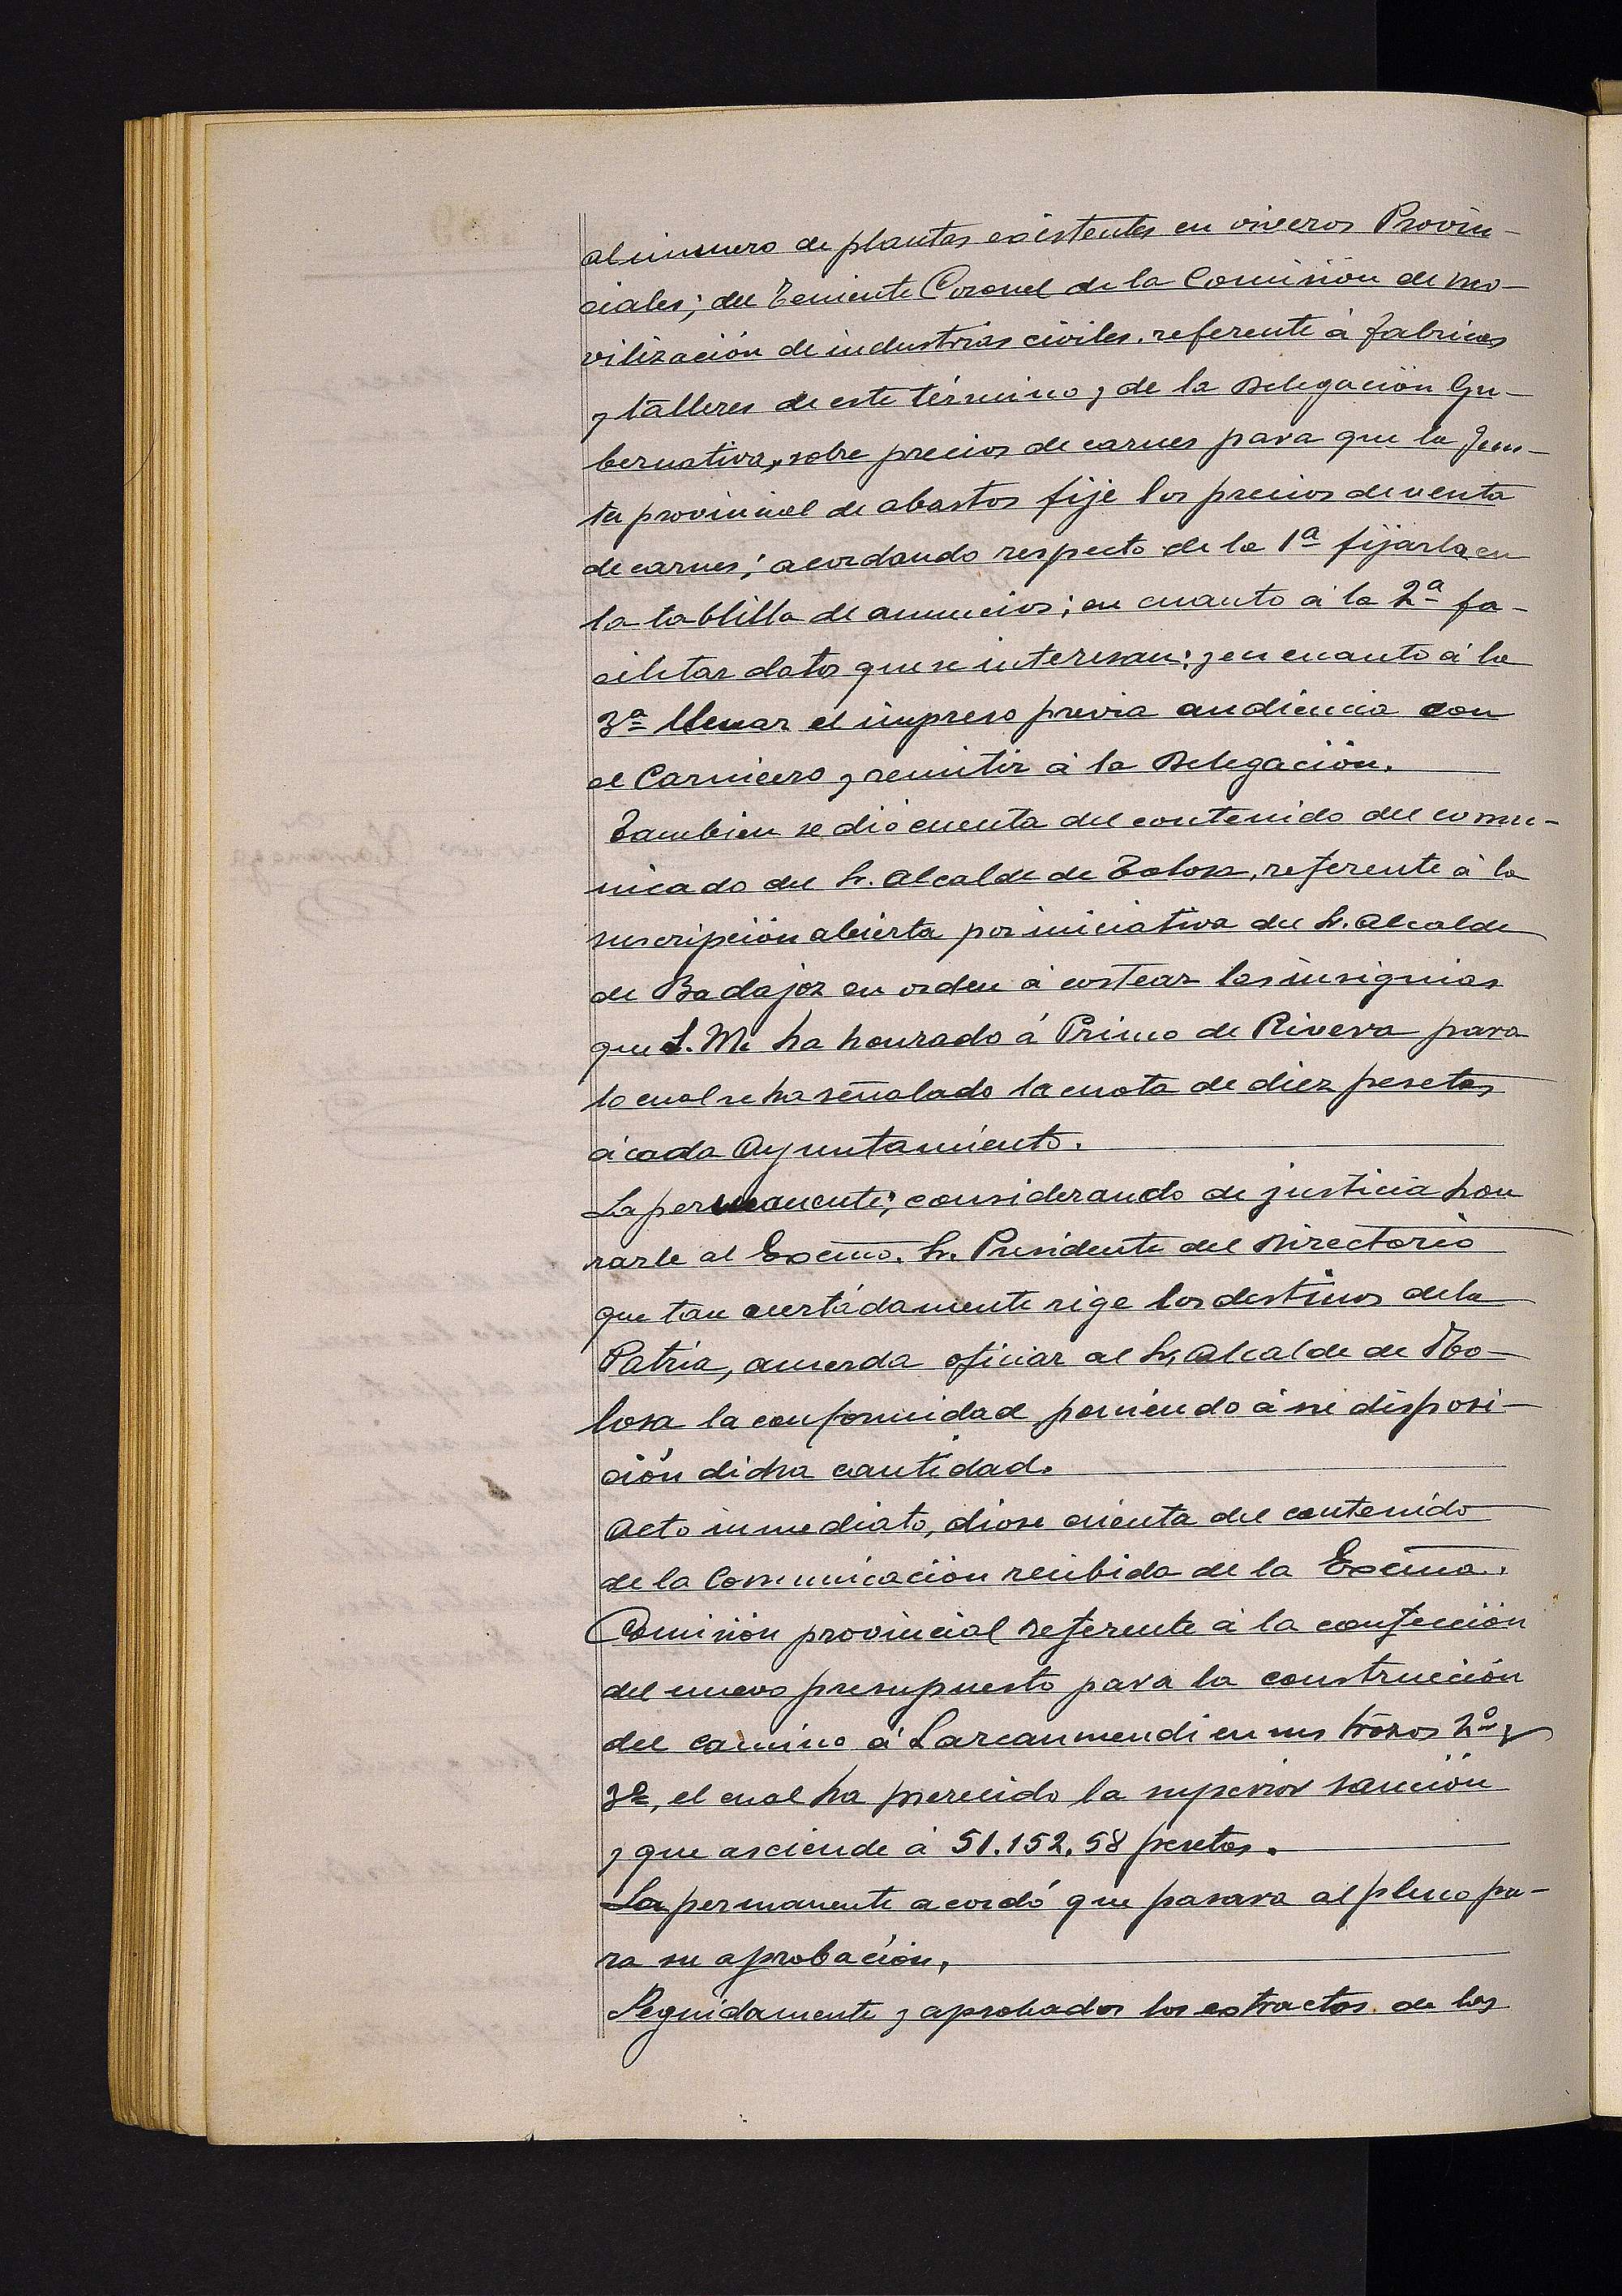 al número de plantas existentes en viveros Provin-
ciales; del Teniente Coronel de la Comisión de mo-
vilización de industrias civiles, referente á fabricas
y talleres de este término y de la Delegación Gu-
bernativa, sobre precios de carnes para que la Jun-
ta provincial de abastos fije los precios de venta
de carnes; acordando respecto de la 1ª fijarla en
la tablilla de anuncios; en cuanto á la 2ª fa-
cilitar datos que se interesan; y en cuanto á la
3ª llenar el impreso previa audiencia con
el Carnicero y remitir á la Delegación.
Tambien se dió cuenta del contenido del comu-
nicado del Sr. Alcalde de Tolosa, referente á la
suscripción abierta por iniciativa del Sr. Alcalde
de Badajoz en orden á costear las insignias
que S. M. ha honrado á Primo de Rivera para
lo cual se ha señalado la cuota de diez pesetas
á cada Ayuntamiento.
La permanente; considerando de justicia hon
rarle al Excmo. Sr. Presidente del Directorio
que tan acertádamente rige los destinos de la
Patria, acuerda oficiar al Sr. Alcalde de To-
losa la conformidad poniendo á su disposi-
ción dicha cantidad.
Acto inmediato, diose cuenta del contenido
de la Comunicación recibida de la Excma.
Comisión provincial referente á la confección
del nuevo presupuesto para la construcción
del camino á Larcanmendi en sus trozos 2º y
3º, el cual ha merecido la superior sanción
y que asciende á 51.152,58 pesetas.
La permanente acordó que pasara al pleno pa-
ra su aprobación.
Seguidamente y aprobados los extractos de los